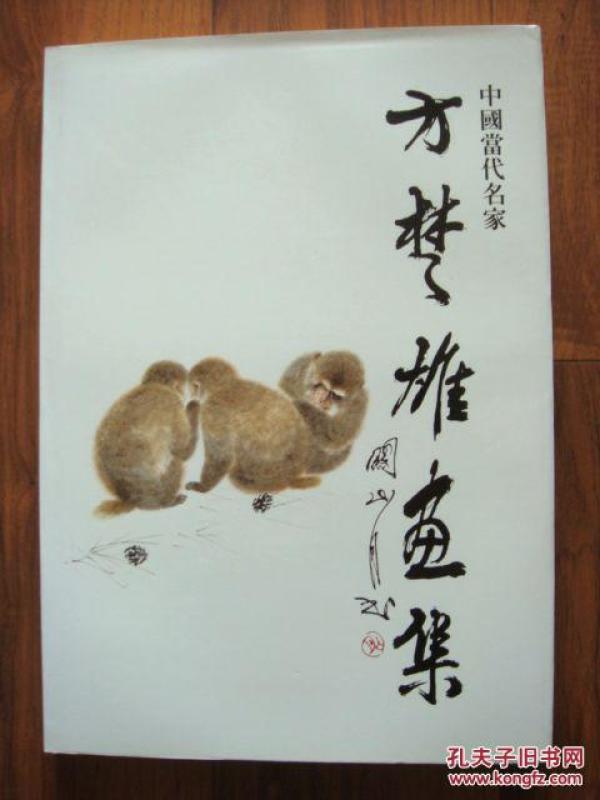 中國當代名家
方楚雄畫集
關山月題
孔夫子旧书网
www.kongfz.com